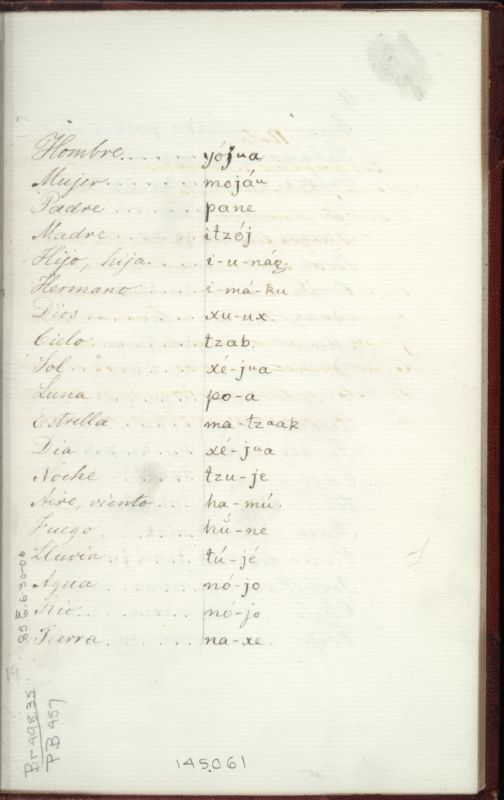 Hombre....... yójua
Mujer....... mojáu
Padre....... pane
Madre....... itzój
Hijo, hija.... i-u-nág.
Hermano.... i-má-ku
Dios....... xu-ux.
Cielo....... tzab.
Sol....... xé-jua
Luna....... po-a
Estrella..... ma-tzaak
Dia....... xé-jua
Noche..... tzu-je
Aire, viento.. ha-mú.
Fuego..... hú-ne
Lluvia..... tú-jé
Agua..... nó-jo
Rio....... nó-jo
Tierra..... na-xe.
Br-498.35
PB 457
145061